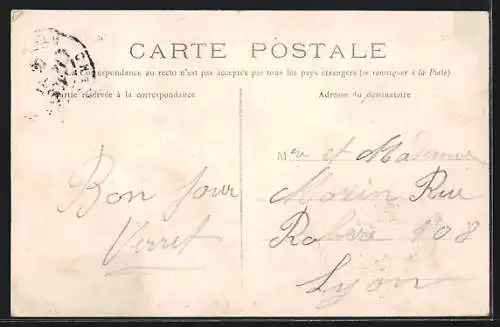 CARTE POSTALE
La Correspondance au recto n'est pas acceptée par tous les pays étrangers (se renseigner à la Poste)
Partie réservée à la correspondance
Adresse du destinataire
Bon jour
Verret
Meur et Madame
Morin Rue
108
Lyon